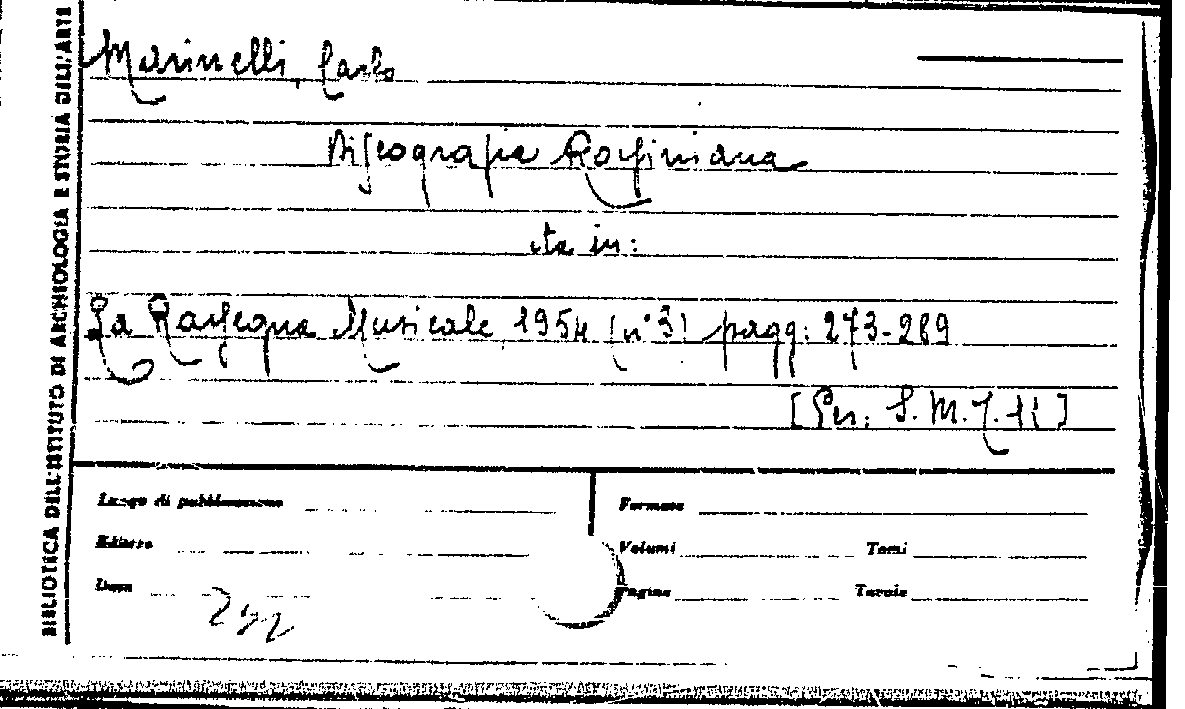 BIBLIOTECA DELL'ISTITUTO DI ARCHEOLOGIA E STORIA DELL'ARTE
Marinelli, Carlo
Discografia Rossiniana
sta in:
La Rassegna Musicale 1954 (n° 3) pagg: 273-289
[Per. S. M.
Luogo di pubblicazione
Formato
Editore
Volumi
Tomi
Data
Pagine
Tavole